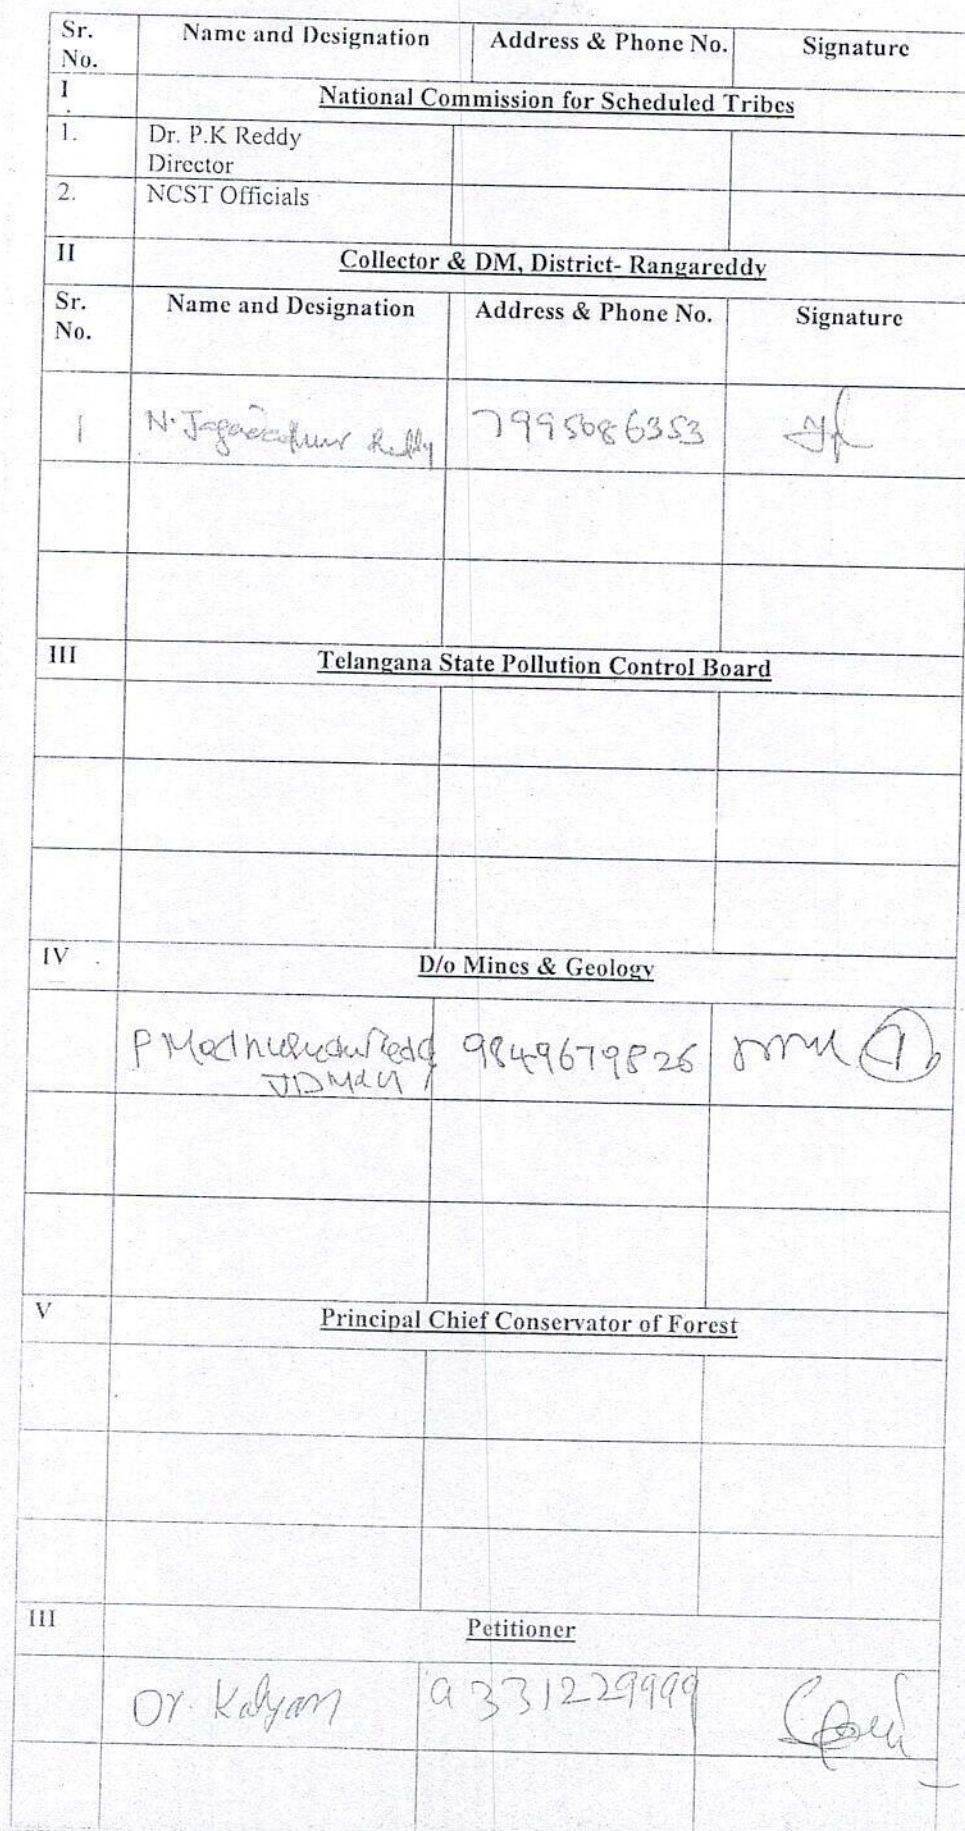 Sr. No. Name and Designation Address & Phone No. Signature
I National Commission for Scheduled Tribes
1. Dr. P.K Reddy
Director
2. NCST Officials
II Collector & DM, District- Rangareddy
Sr. No. Name and Designation Address & Phone No. Signature
1 N. Reddy 7995086353
III Telangana State Pollution Control Board
IV D/o Mines & Geology
P Madhusudan Reddy 9849679826
JDM&G
V Principal Chief Conservator of Forest
III Petitioner
Dr. Kalyan 9331229999